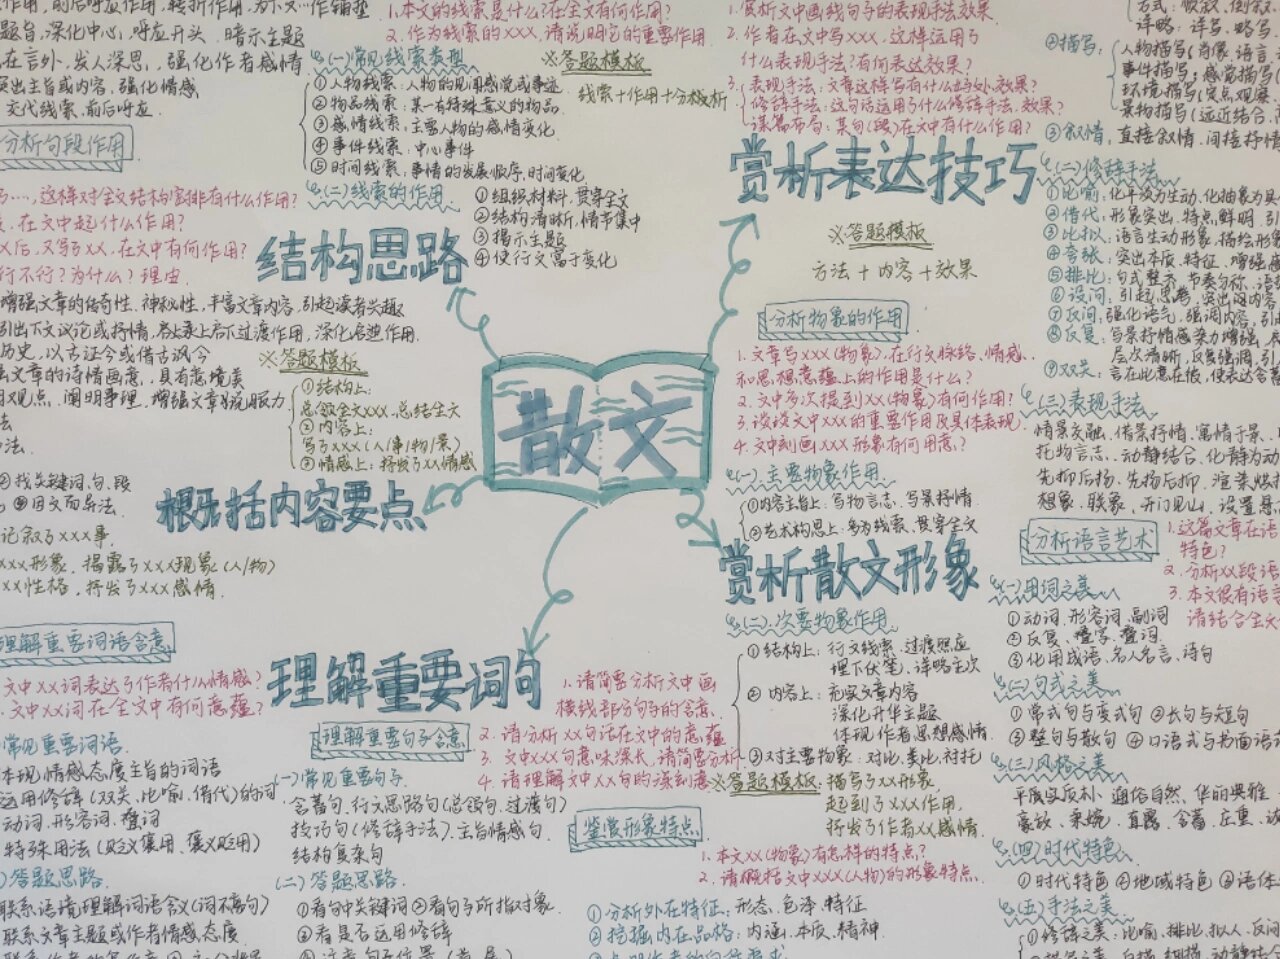 散文
结构思路
分析句段作用
题旨,深化中心,呼应开头,暗示主题
在言外,发人深思,强化作者感情
突出主旨或内容,强化情感
交代线索,前后呼应
1.本文的线索是什么?在全文有何作用?
2.作为线索的XXX,请说明它的重要作用.
(一)常见线索类型
①人物线索:人物的见闻感觉或事迹
②物品线索:某一有特殊意义的物品
③感情线索:主要人物的感情变化
④事件线索:中心事件
⑤时间线索,事情的发展顺序,时间变化
※答题模板
线索+作用+分析
(二)线索的作用
①组织材料,贯穿全文
②结构清晰,情节集中
③揭示主题
④使行文富于变化
在文中起什么作用?
X后,又写了XX,在文中有何作用?
行不行?为什么?理由
增强文章的传奇性、神秘性,丰富文章内容,引起读者兴趣
引出下文议论或抒情,启上承上启下过渡作用,深化启迪作用.
历史,以古证今或借古讽今
文章的诗情画意,具有意境美
观点,阐明事理,增强文章说服力
※答题模板
①结构上:
总领全文XXX.总结全文
②内容上:
写了XXX(人/事/物/景)
③情感上:抒发了XX情感
概括内容要点
②找关键词、句、段
记叙了XXX事.
XX形象,揭露了XXX现象(人/物)
XX性格,抒发了XXX感情.
理解重要词句
理解重要词语含意
文中XX词表达了作者什么情感?
文中XX词在全文中有何意蕴?
常见重要词语.
体现情感态度主旨的词语
运用修辞(双关、比喻、借代)的词
动词、形容词、叠词
特殊用法(贬义褒用、褒义贬用)
答题思路.
联系语境理解词语含义(词不离句)
联系文章主题或作者情感态度
理解重要句子含意
1.请简要分析文中画
横线部分句子的含意.
2.请分析XX句话在文中的意蕴
3.文中XX句意味深长,请简要分析
4.请理解文中XX句的深刻意
(一)常见重要句子
含蓄句、行文思路句(总领句、过渡句)
技巧句(修辞手法)、主旨情感句.
结构复杂句
(二)答题思路.
①看句中关键词②看句子所指对象.
③看是否运用修辞
赏析表达技巧
1.赏析文中画线句子的表现手法效果.
2.作者在文中写XXX.这样运用了
什么表现手法?有何表达效果?
3.表现手法:文章这样写有什么妙处,效果?
修辞手法:这句话运用了什么修辞手法,效果?
谋篇布局:某句(段)在文中有什么作用?
※答题模板
方法+内容+效果
②描写:
人物描写(肖像、语言
③抒情,直接抒情,间接抒情
(二)修辞手法
①比喻:化平淡为生动,化抽象为具
②借代:形象突出,特点鲜明,引
③比拟:语言生动形象,描绘形象
④夸张:突出本质、特征,增强感
⑤排比:句式整齐、节奏匀称、语
⑥设问:引起思考,突出内容
⑦反问:强化语气,强调内容,引
⑧反复:写景抒情感染力增强
层次清晰,反复强调
⑨双关:言在此意在彼,使表达含蓄
(三)表现手法
情景交融、借景抒情、寓情于景
托物言志、动静结合、化静为动
先抑后扬、先扬后抑、渲染烘托
想象、联象、开门见山,设置悬
分析物象的作用
1.文章写XXX(物象),在行文脉络、情感
和思想意蕴上的作用是什么?
2.文中多次提到XX(物象)有何作用?
3.谈谈文中XXX的重要作用及具体表现.
4.文中刻画XXX形象有何用意?
(一)主要物象作用
①内容主旨上:写物言志、写景抒情
②艺术构思上:多为线索,贯穿全文
赏析散文形象
(二)次要物象作用
①结构上:行文线索、过渡照应
埋下伏笔、详略主次
②内容上:充实文章内容
深化升华主题
体现作者思想感情
③对主要物象:对比、类比、衬托
※答题模板:描写了XX形象
起到了XXX作用,
抒发了作者XX感情.
鉴赏形象特点
1.本文XX(物象)有怎样的特点?
2.请概括文中XXX(人物)的形象特点.
①分析外在特征:形态、色泽、特征
②挖掘内在品格:内涵、本质、精神
分析语言艺术
1.这篇文章在语
特色?
2.分析XX段语
3.本文很有语言
请结合全文
(一)用词之美
①动词、形容词、副词
②反复、叠字、叠词
③化用成语、名人名言、诗句
(二)句式之美
①常式句与变式句 ②长句与短句
③整句与散句 ④口语式与书面语
(三)风格之美
平实质朴、通俗自然、华丽典雅
豪放、柔婉、直露、含蓄、庄重
(四)时代特色
①时代特色②地域特色③语体
(五)手法之美
①修辞之美:比喻、排比、拟人、反问